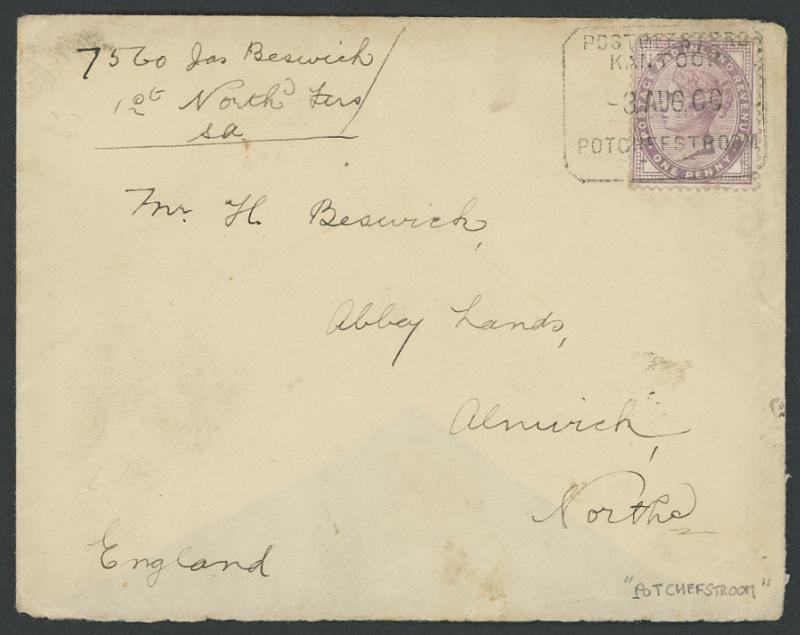 7560 Jas Beswick
1st North'd Fus
SA
POSTMEESTERS
KANTOOR
-3 AUG.00
POTCHEFSTROOM
POSTAGE AND INLAND REVENUE
ONE PENNY
Mr. H. Beswick,
Abbey Lands,
Alnwick,
Northd
England
"POTCHEFSTROOM"